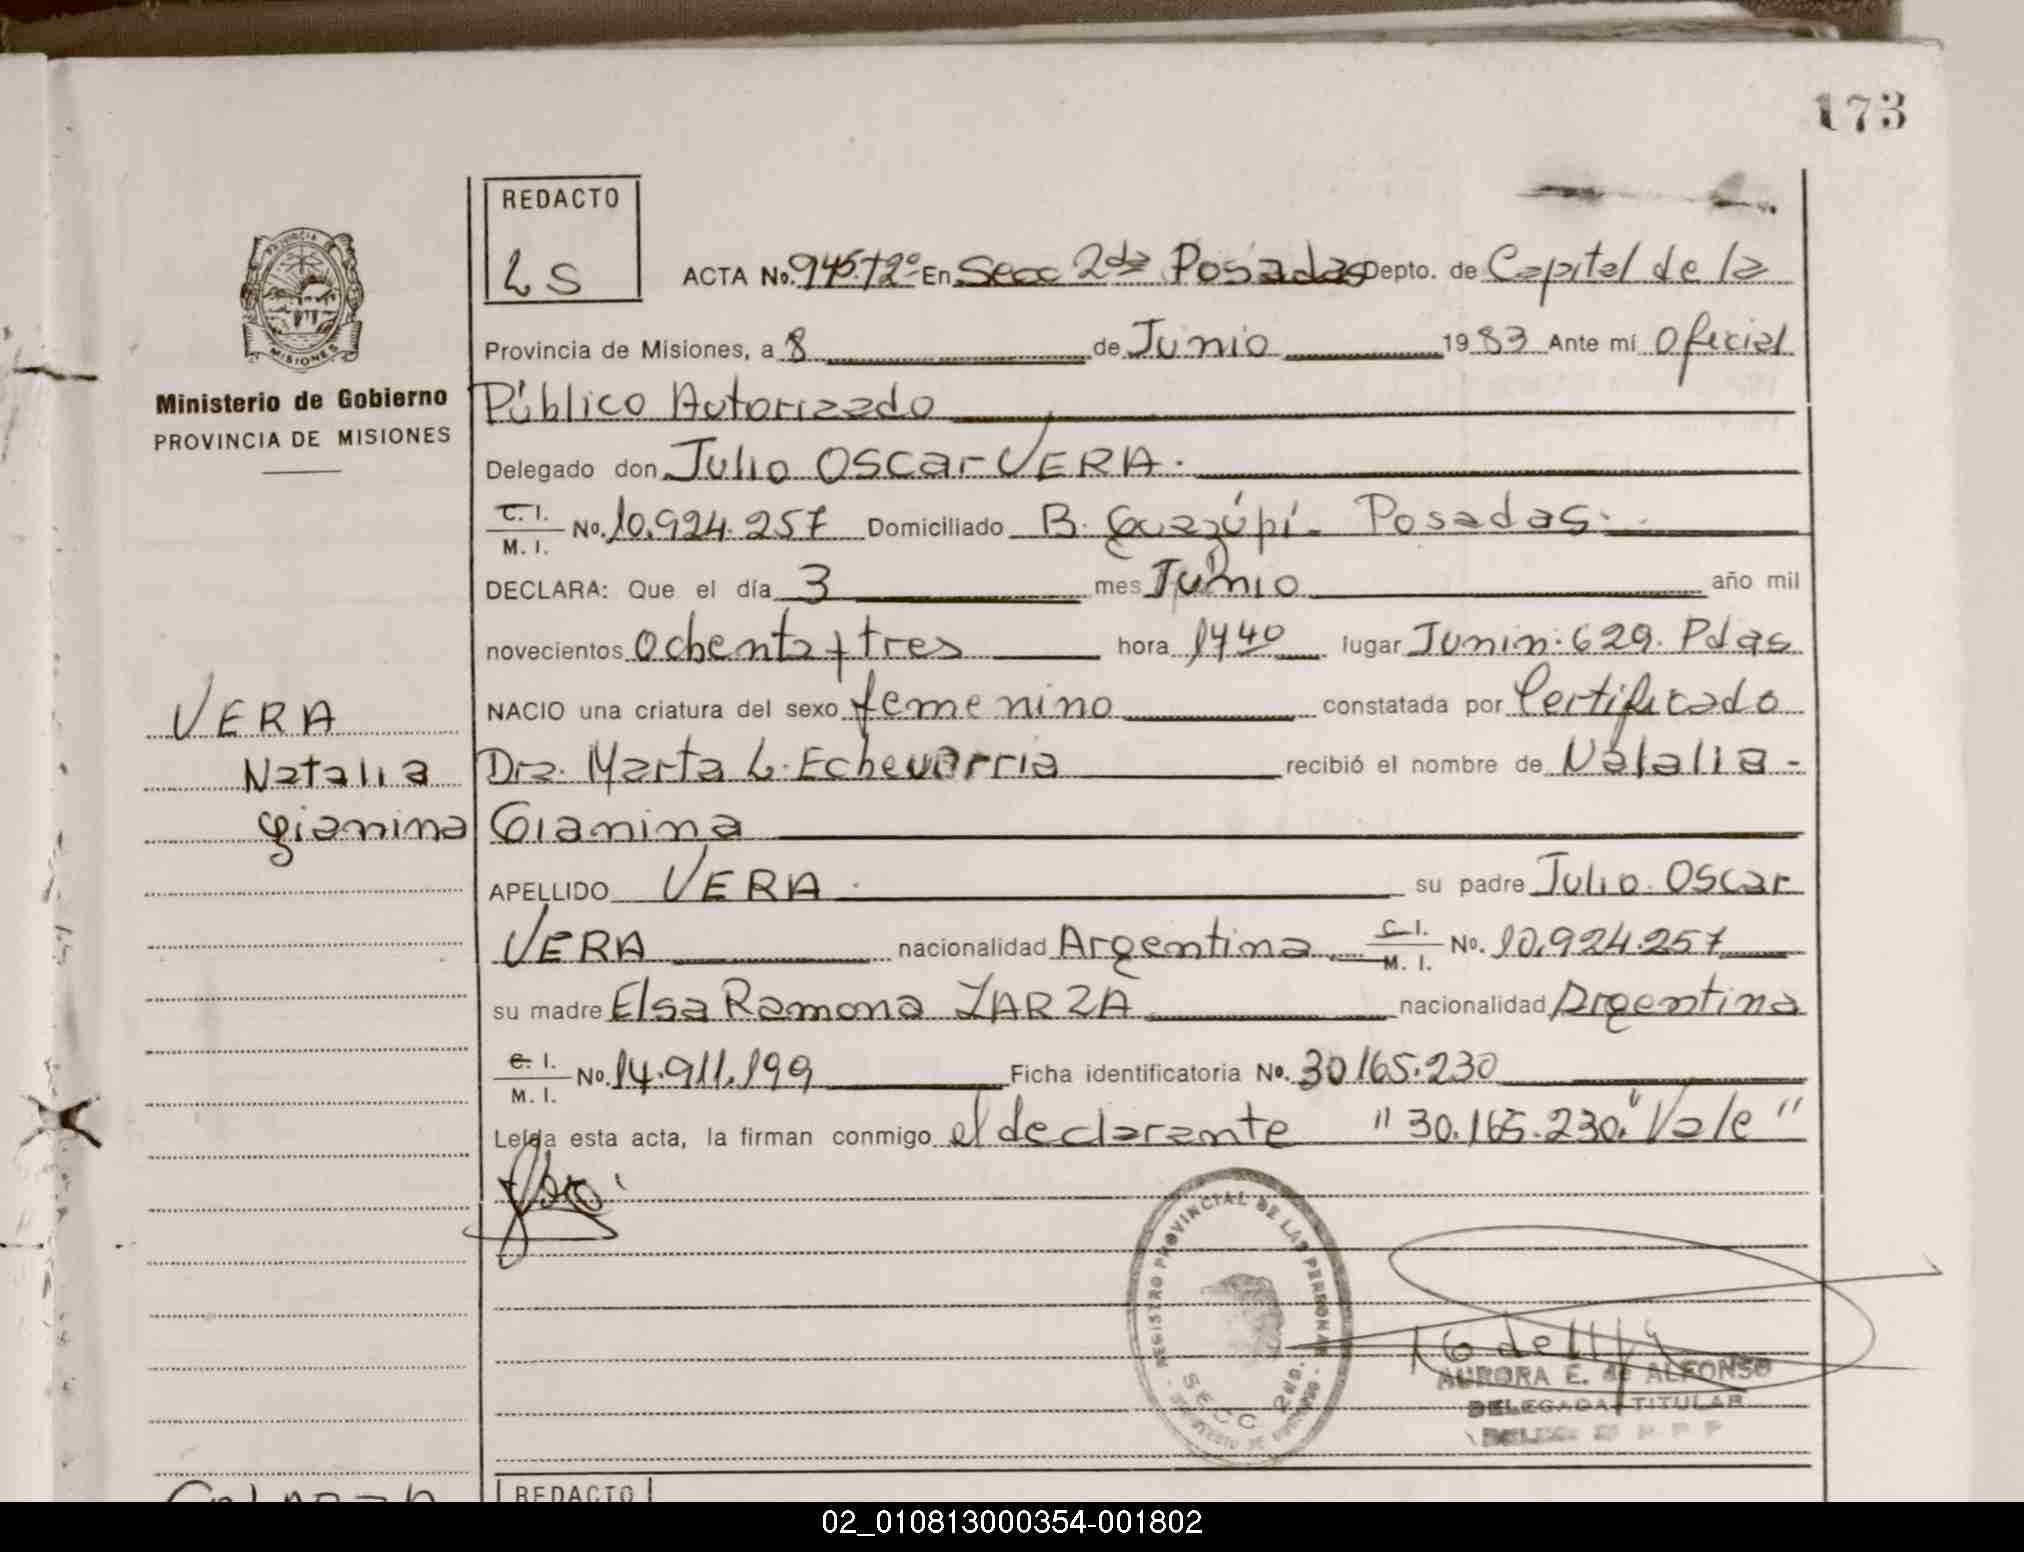 173
REDACTO
LS
PROVINCIA DE
MISIONES
Ministerio de Gobierno
PROVINCIA DE MISIONES
ACTA No. 945.T2º En Secc 2da Posadas Depto. de Capital de la
Provincia de Misiones, a 8 de Junio 1983 Ante mí Oficial
Público Autorizado
Delegado don Julio Oscar VERA.
C. I.
M. I. No. 10.924.257 Domiciliado B. Guazúpí - Posadas.
DECLARA: Que el día 3 mes Junio año mil
novecientos ochenta y tres hora 1740 lugar Junin. 629. Pdas
NACIO una criatura del sexo femenino constatada por Certificado
Dra. Marta L. Echevarria recibió el nombre de Natalia -
Gianina
VERA
Natalia
Gianina
APELLIDO VERA. su padre Julio Oscar
VERA nacionalidad Argentina C. I.
M. I. No. 10.924.257
su madre Elsa Ramona ZARZA nacionalidad Argentina
C. I.
M. I. No. 14.911.199 Ficha identificatoria No. 30165.230
Leída esta acta, la firman conmigo el declarante "30.165.230" Vale"
REGISTRO PROVINCIAL DE LAS PERSONAS
SECC 2da.
AURORA E. de ALFONSO
DELEGADA TITULAR
REDACTO
02_010813000354-001802